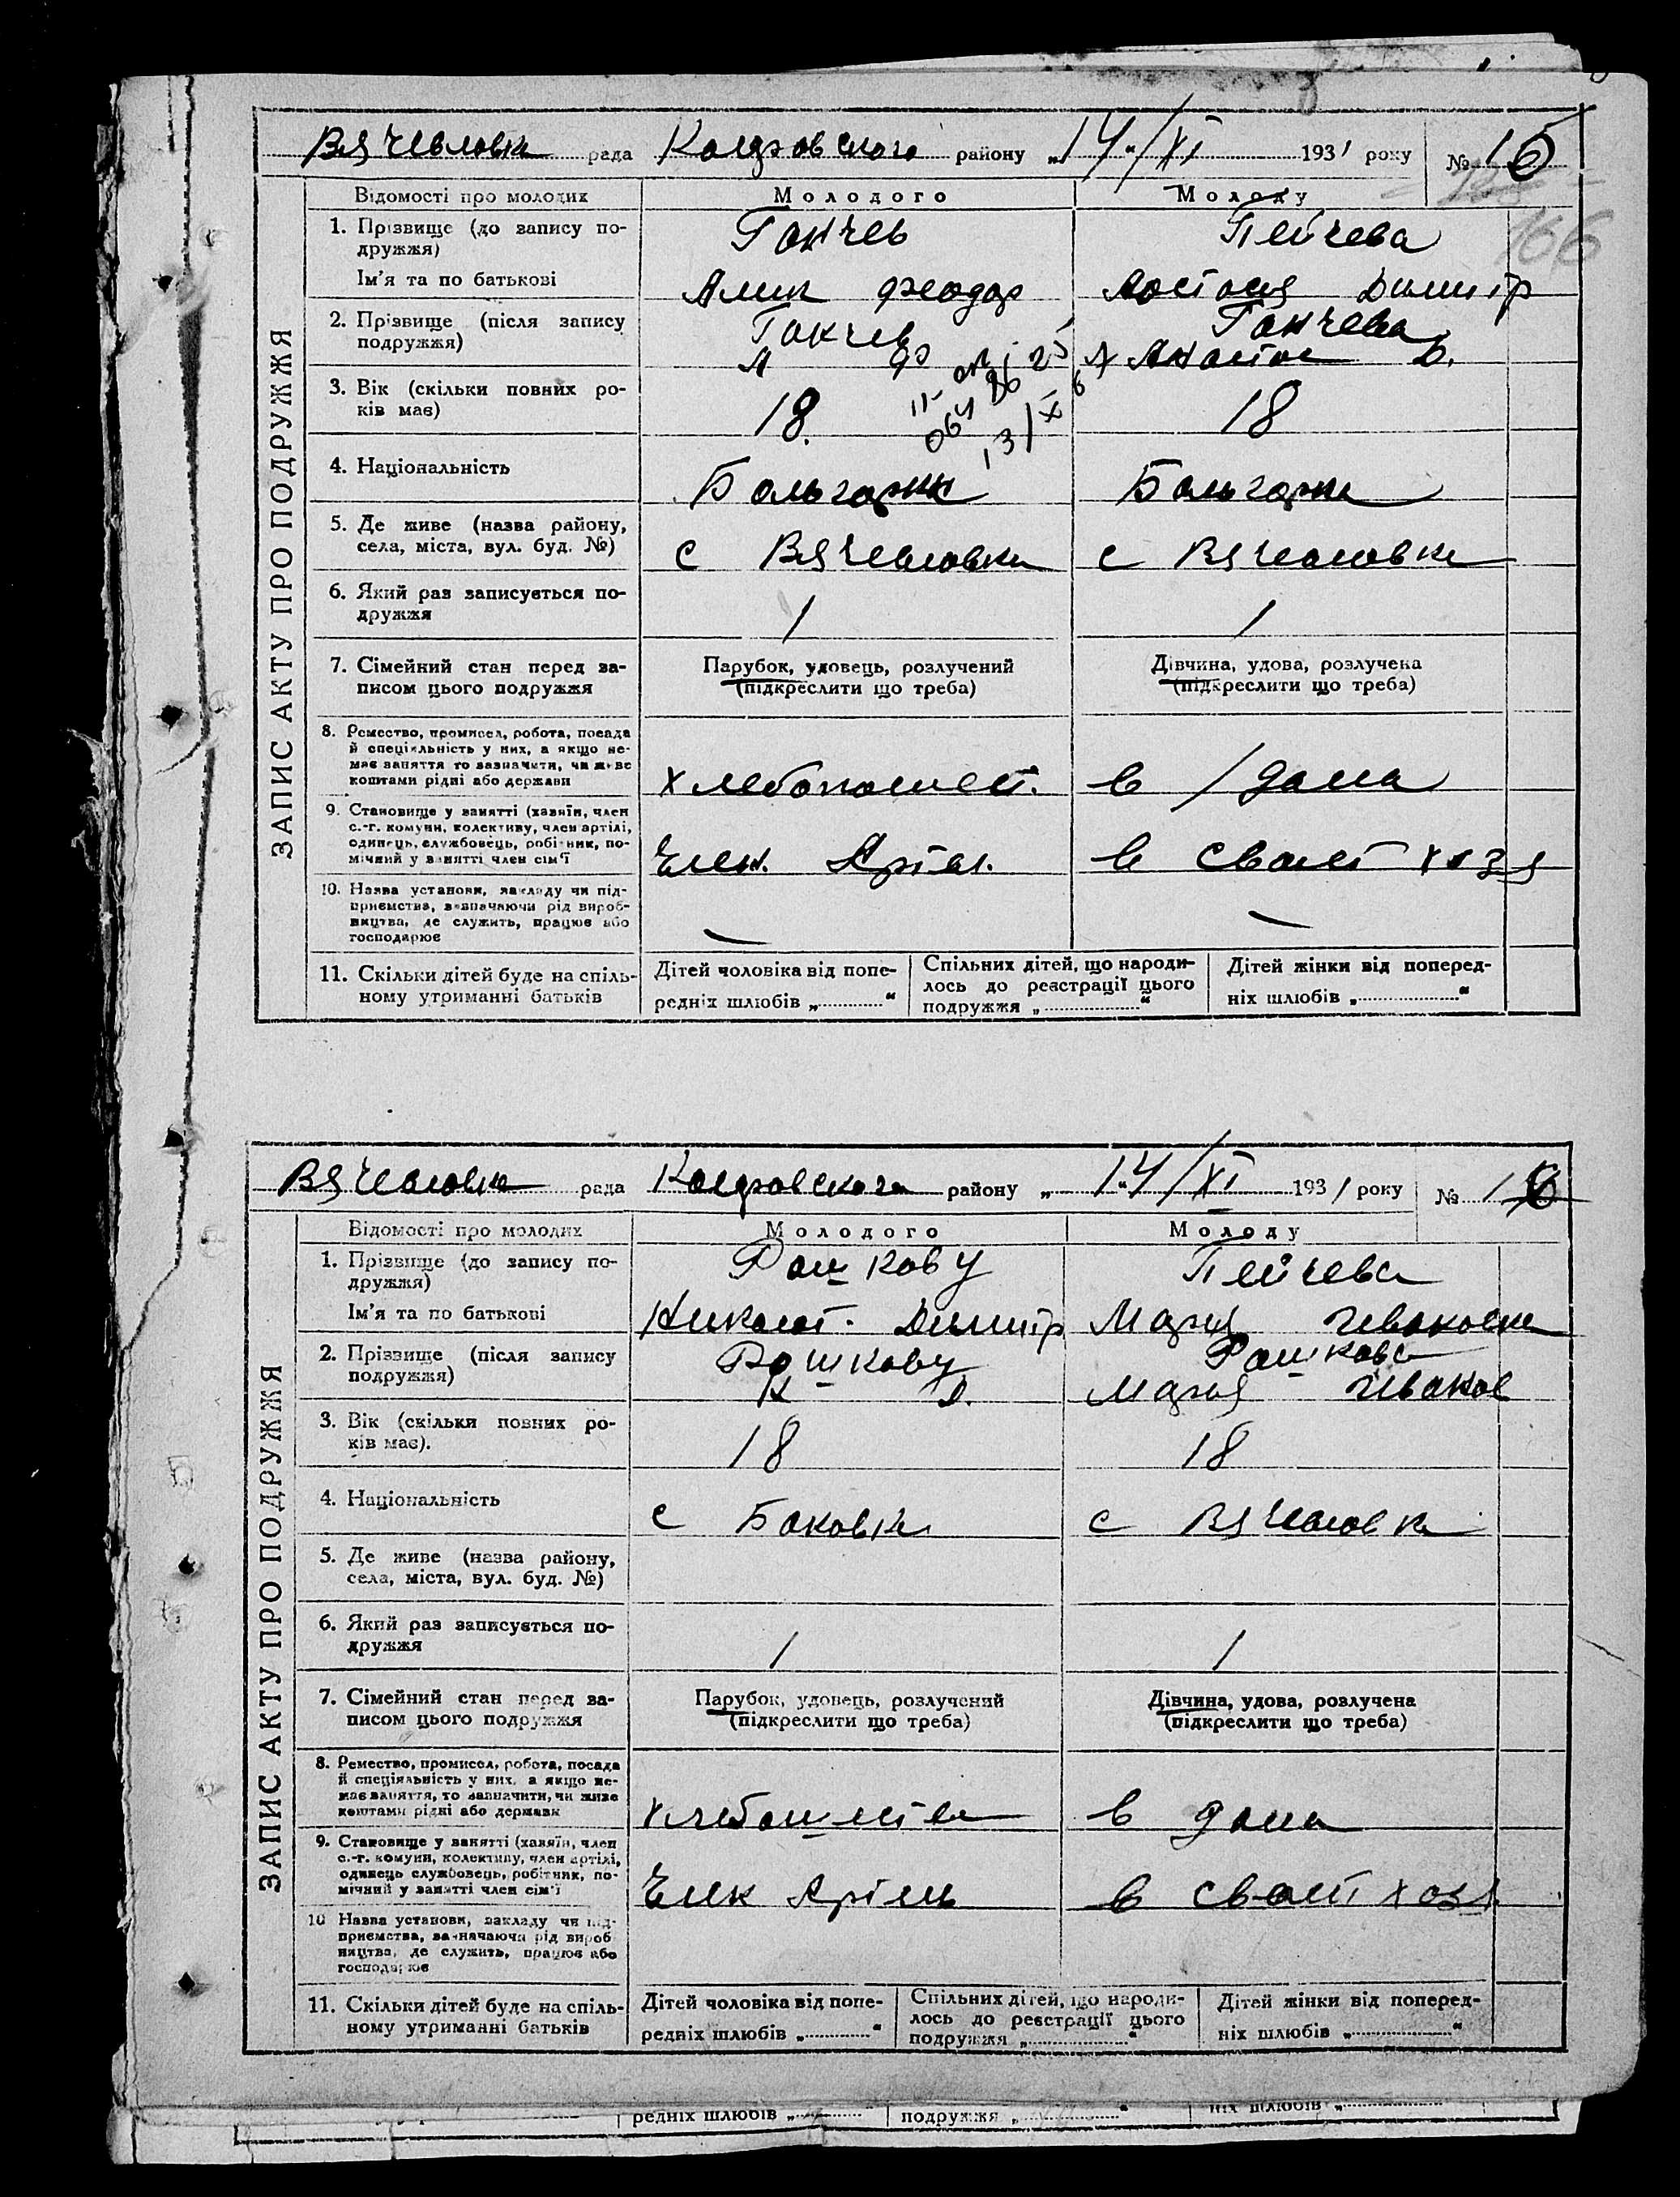 Вячеаловка рада Колсровского району „14“/XI 1931 року № 15
166
ЗАПИС АКТУ ПРО ПОДРУЖЖЯ
Відомості про молодих Молодого Молоду
1. Прізвище (до запису по-
дружжя) Гакчев Пейчева
Ім'я та по батькові Федор Димитр
2. Прізвище (після запису
подружжя) Гакчев Гакчева
3. Вік (скільки повних ро-
ків має) 18. 18
4. Національність Бальгарка Бальгарка
5. Де живе (назва району,
села, міста, вул. буд. №) с с
6. Який раз записується по-
дружжя 1 1
7. Сімейний стан перед за-
писом цього подружжя
Парубок, удовець, розлучений
(підкреслити що треба)
Дівчина, удова, розлучена
(підкреслити що треба)
8. Ремество, промисел, робота, посада
й спеціяльність у них, а якщо не-
має заняття то зазначити, чи живе
коштами рідні або держави
в / дома
9. Становище у занятті (хазяїн, член
с.-г. комуни, колективу, член артілі,
одинець, службовець, робітник, по-
мічний у занятті член сім'ї
Член. Артел. в своем хозя
10. Назва установи, закладу чи під-
приємства, зазначаючи рід вироб-
ництва, де служить, працює або
господарює — —
11. Скільки дітей буде на спіль-
ному утриманні батьків
Дітей чоловіка від попе-
редніх шлюбів „ “
Спільних дітей, що народи-
лось до реєстрації цього
подружжя „ “
Дітей жінки від поперед-
ніх шлюбів „ “
рада району „14/XI 1931 року № 16
ЗАПИС АКТУ ПРО ПОДРУЖЖЯ
Відомості про молодих Молодого Молоду
1. Прізвище (до запису по-
дружжя) Рашкову Пейчева
Ім'я та по батькові Николай. Димитр Мария
2. Прізвище (після запису
подружжя) Рашкову Рашкова
Н Д. Мария
3. Вік (скільки повних ро-
ків має). 18 18
4. Національність с с
5. Де живе (назва району,
села, міста, вул. буд. №)
6. Який раз записується по-
дружжя 1 1
7. Сімейний стан перед за-
писом цього подружжя
Парубок, удовець, розлучений
(підкреслити що треба)
Дівчина, удова, розлучена
(підкреслити що треба)
8. Ремество, промисел, робота, посада
й спеціяльність у них, а якщо не-
має заняття, то зазначити, чи живе
коштами рідні або держави
в дома
9. Становище у занятті (хазяїн, член
с.-г. комуни, колективу, член артілі,
одинець службовець, робітник, по-
мічний у занятті член сім'ї
Член Артель в своем хозя
10 Назва установи, закладу чи під-
приємства, зазначаючи рід вироб
ництва, де служить, працює або
господарює
11. Скільки дітей буде на спіль-
ному утриманні батьків
Дітей чоловіка від попе-
редніх шлюбів „ “
Спільних дітей, що народи-
лось до реєстрації цього
подружжя „ “
Дітей жінки від поперед-
ніх шлюбів „ “
редніх шлюбів „ “ подружжя „ “ ніх шлюбів „ “